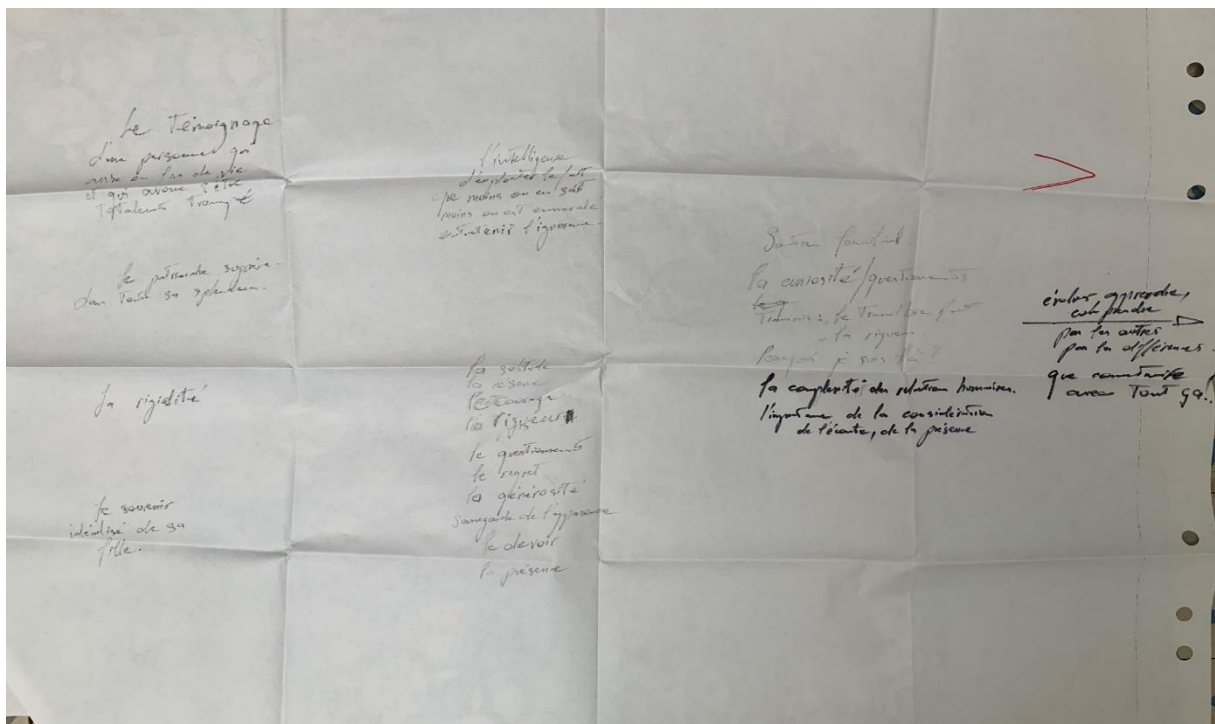 Le Témoignage
d'une personne qui
arrive en fin de vie
et qui avoue s'être
totalement trompé
le patriarche suprême
dans toute sa splendeur.
La rigidité
le souvenir
idéalisé de sa
fille.
l'intelligence
d'exploiter le fait
que moins on en sait
moins on est
entretenir l'ignorance
la solitude
la réserve
la rigueur
le questionnement
le regret
la générosité
sauvegarde de l'apparence
le devoir
la présence
la curiosité/questionnements
la rigueur
Pourquoi je suis là ?
la complexité des relations humaines.
l'importance de la considération
de l'écoute, de la présence
évoluer, apprendre,
comprendre
par les autres
par les différences.
que construire
avec Tout ça!